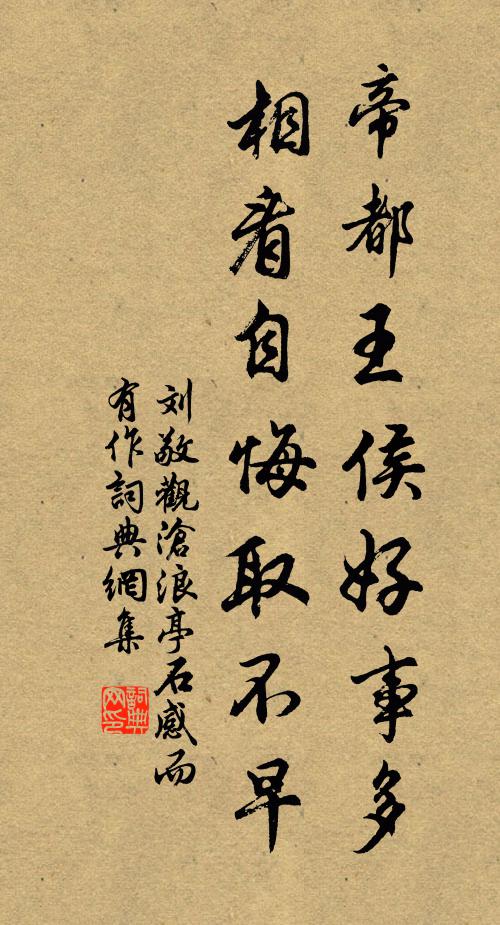 帝都王侯好事多
相看自悔取不早
刘敞觀滄浪亭石感而
有作詞典網集
詞典
网印